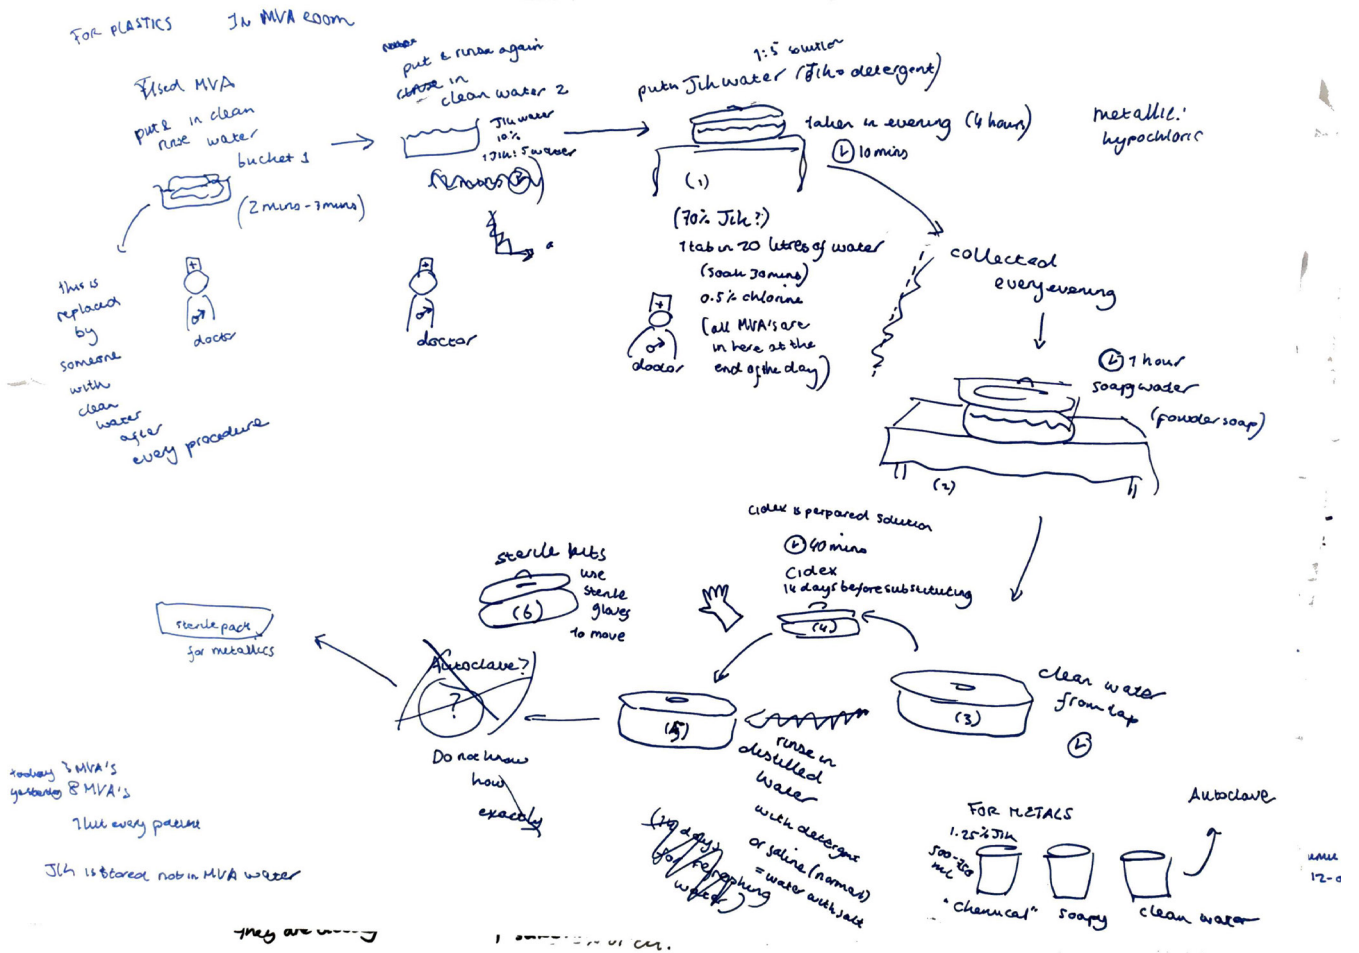 FOR PLASTICS
IN MVA ROOM
Used MVA
put & in clean
rinse water
bucket 1
(2 mins - 3 mins)
this is
replaced
by
someone
with
clean
water
after
every procedure
doctor
put & rinse again
in
clean water 2
Jik water
10%
1 Jik: 5 water
doctor
1:5 solution
put in Jik water (Jik = detergent)
taken in evening (4 hours)
10 mins
(1)
(70% Jik?)
1 tab in 20 litres of water
(soak 30 mins)
0.5% chlorine
(all MVA's are
in here at the
end of the day)
doctor
metallic:
hypochloric
collected
every evening
1 hour
soapy water
(powder soap)
(2)
clean water
from tap
(3)
Cidex is perpared solution
40 mins
Cidex
14 days before substituting
(4)
(5)
rinse in
distilled
water
with detergent
or saline (normal)
= water with salt
(14 days
for refreshing
water)
sterile kits
use
sterile
gloves
to move
(6)
Autoclave?
?
Do not know
how
exactly
sterile pack
for metallics
today 3 MVA's
yesterday 8 MVA's
1 kit every patient
Jik is stored not in MVA water
FOR METALS
1.25% Jik
500-
ml
"chemical"
soapy
clean water
Autoclave
12-
they are